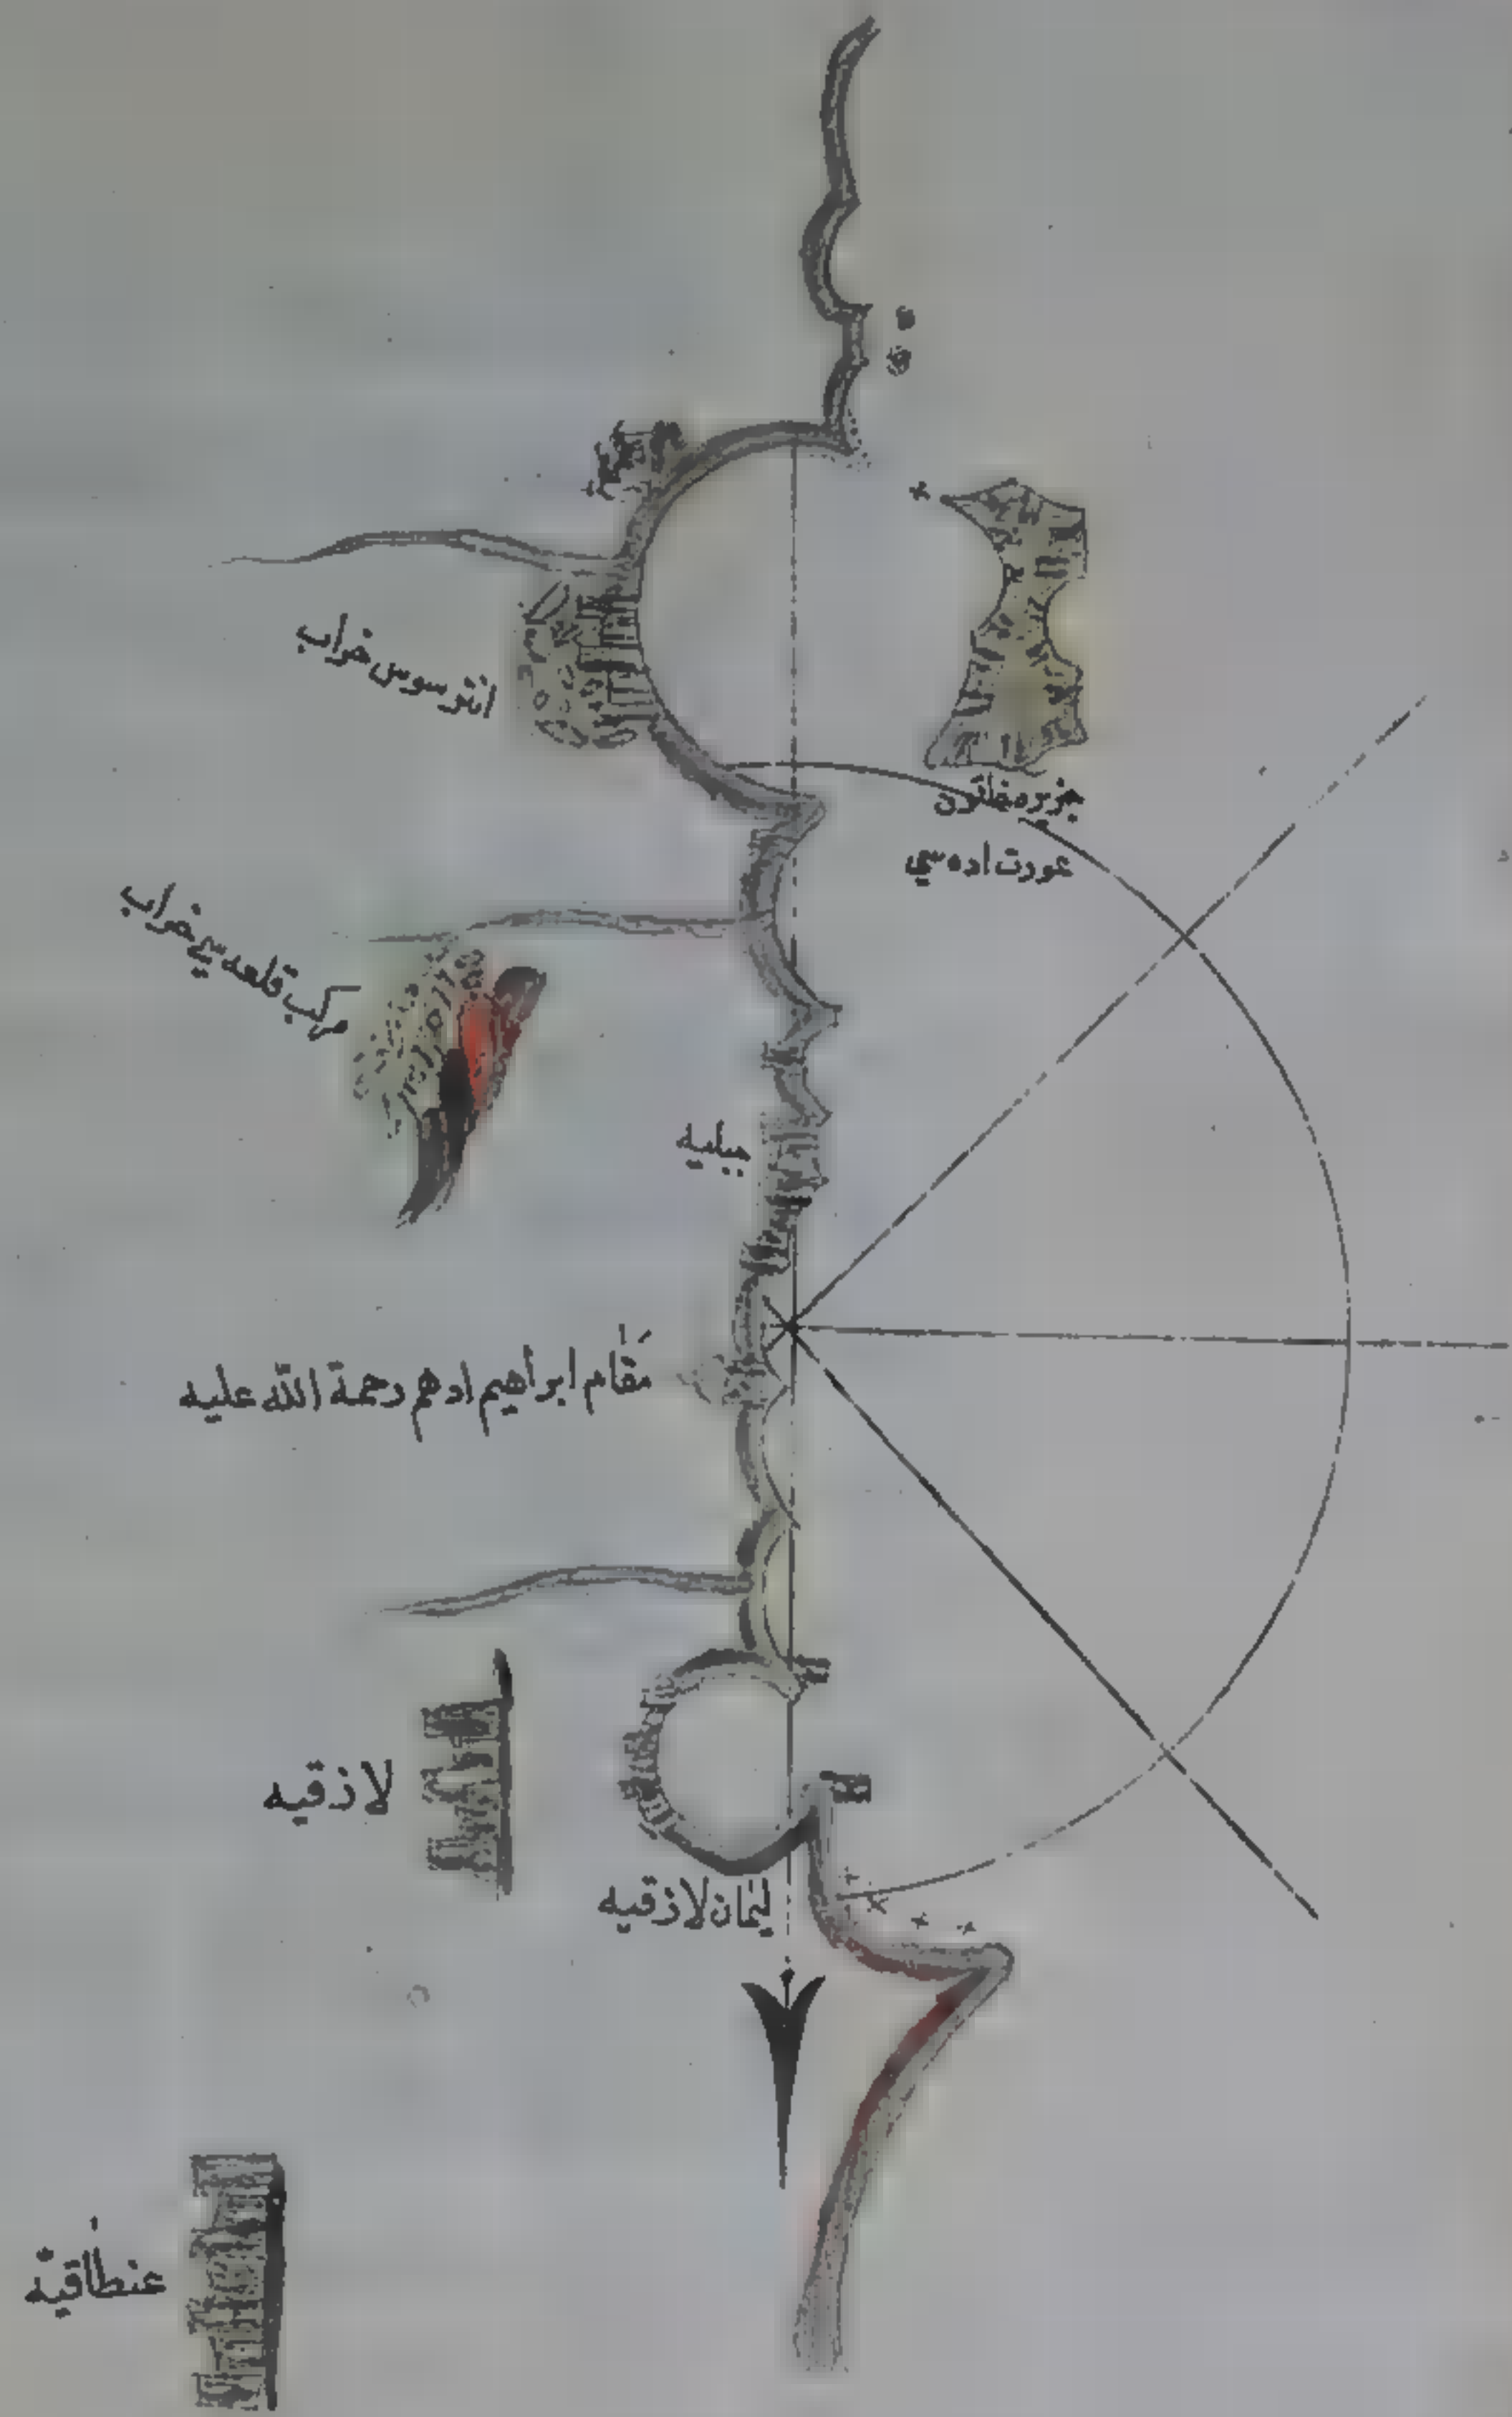 انترسوس خراب
جزيره خاتون
عورت اده سي
مركب قلعه سي خراب
جبليه
مقام ابراهيم ادهم رحمة الله عليه
لاذقيه
ليمان لاذقيه
عنطاقيه